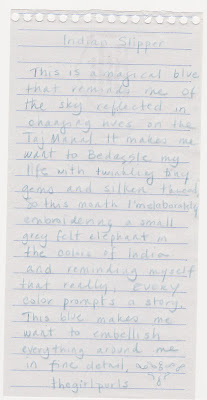 Indian Slipper
This is a magical blue
that reminds me of
the sky reflected in
changing hues on the
Taj Mahal. It makes me
want to Bedazzle my
life with twinkling Day
gems and silken thread.
So this month I'm elaborately
embroidering a small
grey felt elephant in
the colors of India
and reminding myself
that really, every
color prompts a story.
This blue makes me
want to embellish
everything around me
in fine detail,
thegirlpearls